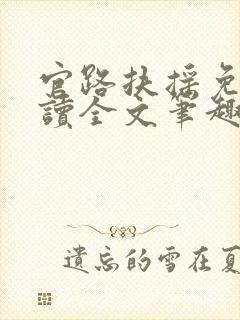 官路扶摇免
讀全文筆趣
遺忘的雪在夏